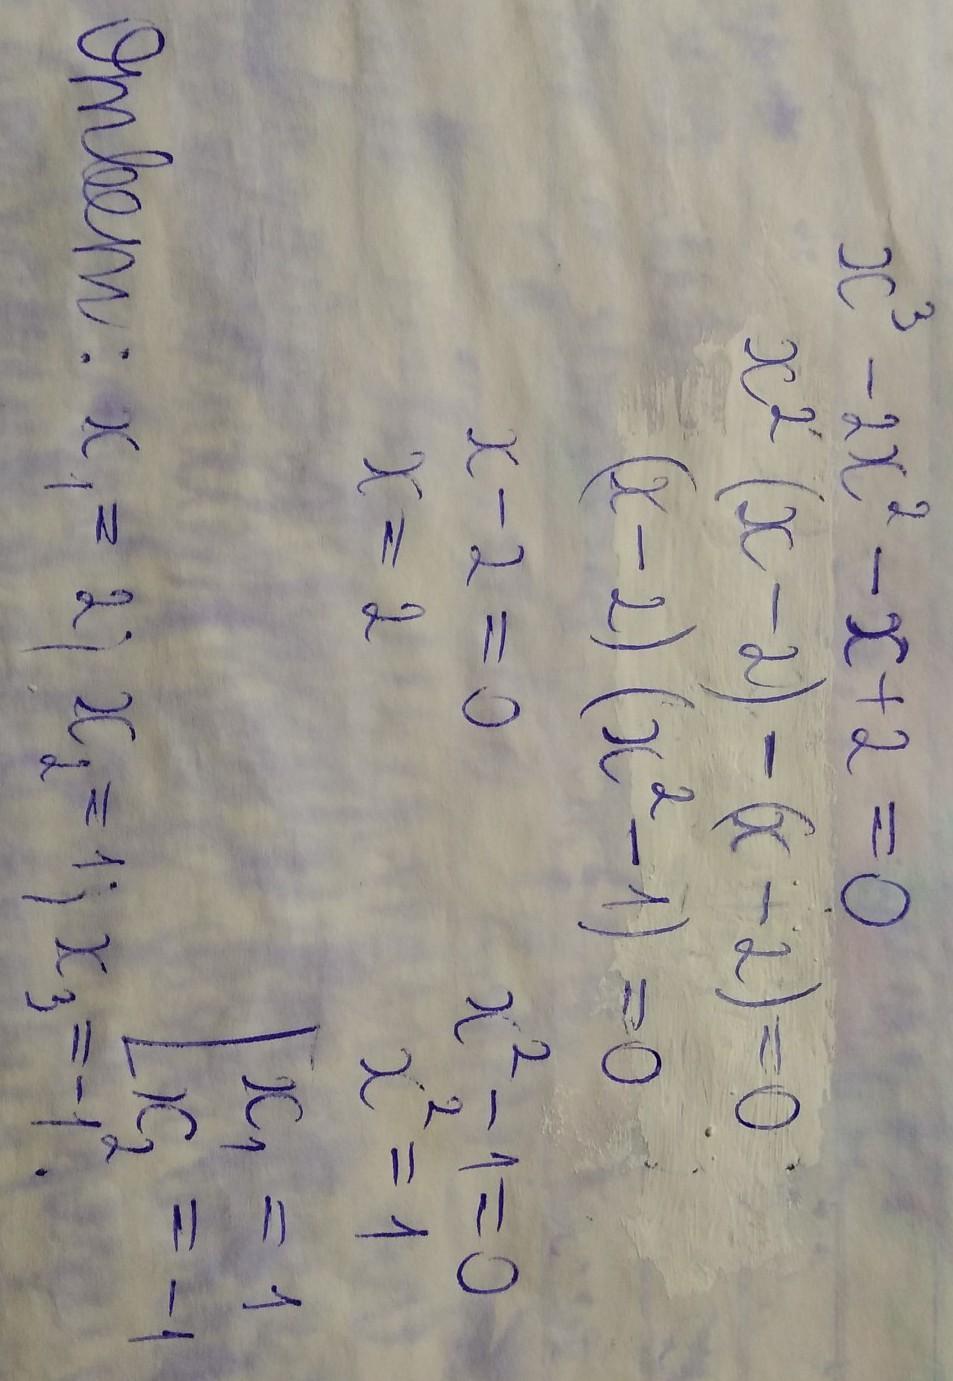 x³ - 2x² - x + 2 = 0
x² (x - 2) - (x - 2) = 0
(x - 2) (x² - 1) = 0
x - 2 = 0 x² - 1 = 0
x = 2 x² = 1
[x₁ = 1
x₂ = -1
Ответ: x₁ = 2; x₂ = 1; x₃ = -1.